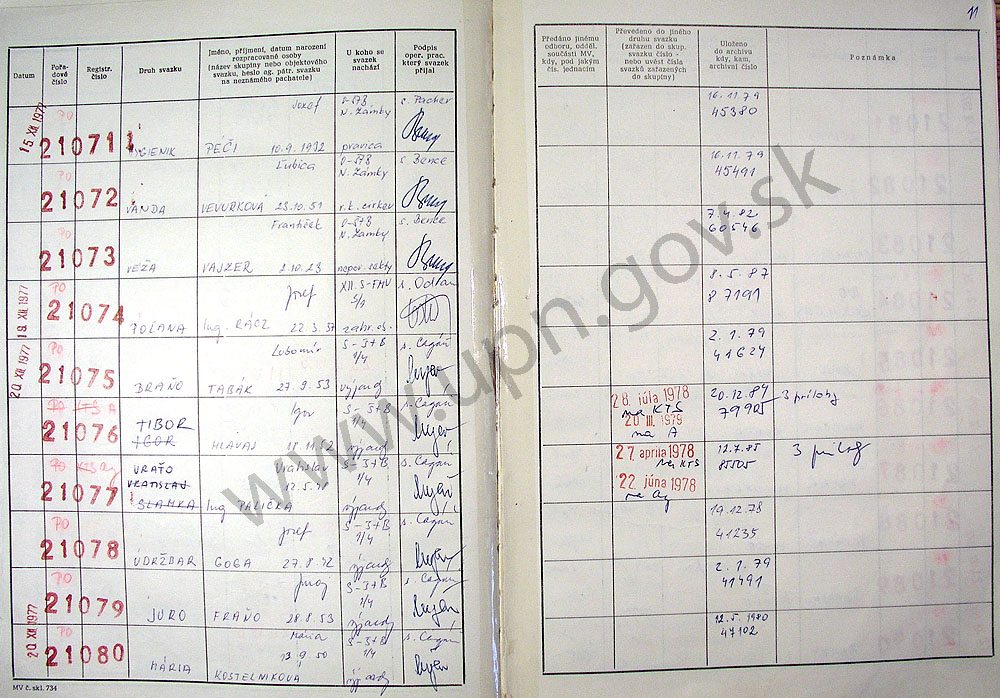 Datum
Pořadové číslo
Registr. číslo
Druh svazku
Jméno, příjmení, datum narození
rozpracované osoby
(název skupiny nebo objektového
svazku, heslo ag. pátr. svazku
na neznámého pachatele)
U koho se
svazek
nachází
Podpis
oper. prac.
který svazek
přijal
15 XII 1977
PO
21071
HYGIENIK
Jozef
PÉČI 10.9.1932
N. Zámky
pravica
PO
21072
VANDA
Ľubica
VEVURKOVÁ 23.10.51
N. Zámky
r.k. cirkev
s. Bence
PO
21073
VEŽA
František
VAJZER 2.10.23
N. Zámky
nepov. sekty
s. Bence
19 XII 1977
PO
21074
POLANA
Jozef
Ing. RÁCZ 22.3.37
XII. S-FMV
zahr. os.
20 XII 1977
PO
21075
BRAŇO
Lubomír
TABÁK 27.9.53
S-3+B
1/4
výjazdy
PO KTS A
21076
TIBOR
IGOR
Igor
HLAVAJ
S-3+B
1/4
PO KTS Ag
21077
VRAŤO
VRATISLAV
SLAMKA
Vratislav
Ing PALIČKA
S-3+B
1/4
výjazdy
PO
21078
ÚDRŽBAR
Jozef
GOGA 27.8.42
S-3+B
1/4
výjazdy
PO
21079
JURO
Juraj
FRAŇO 28.8.53
S-3+B
1/4
výjazdy
20 XII 1977
PO
21080
MÁRIA
Mária
13.9.50
KOSTELNIKOVÁ
S-3+B
1/4
výjazdy
MV č. skl. 734
11
Předáno jinému
odboru, odděl.
součásti MV,
kdy, pod jakým
čís. jednacím
Převedeno do jiného
druhu svazku
(zařazen do skup.
svazku číslo -
nebo uvést čísla
svazků zařazených
do skupiny)
Uloženo
do archivu
kdy, kam,
archivní číslo
Poznámka
16.11.79
45380
16.11.79
45491
7.4.82
60546
8.5.87
87191
2.1.79
41624
28. júla 1978
na KTS
20 III. 1979
na A
20.12.84
79905
3 prílohy
27. apríla 1978
na KTS
22. júna 1978
na Ag
12.7.85
3 príloh
19.12.78
41235
2.1.79
41491
12.5.1980
47102
www.upn.gov.sk